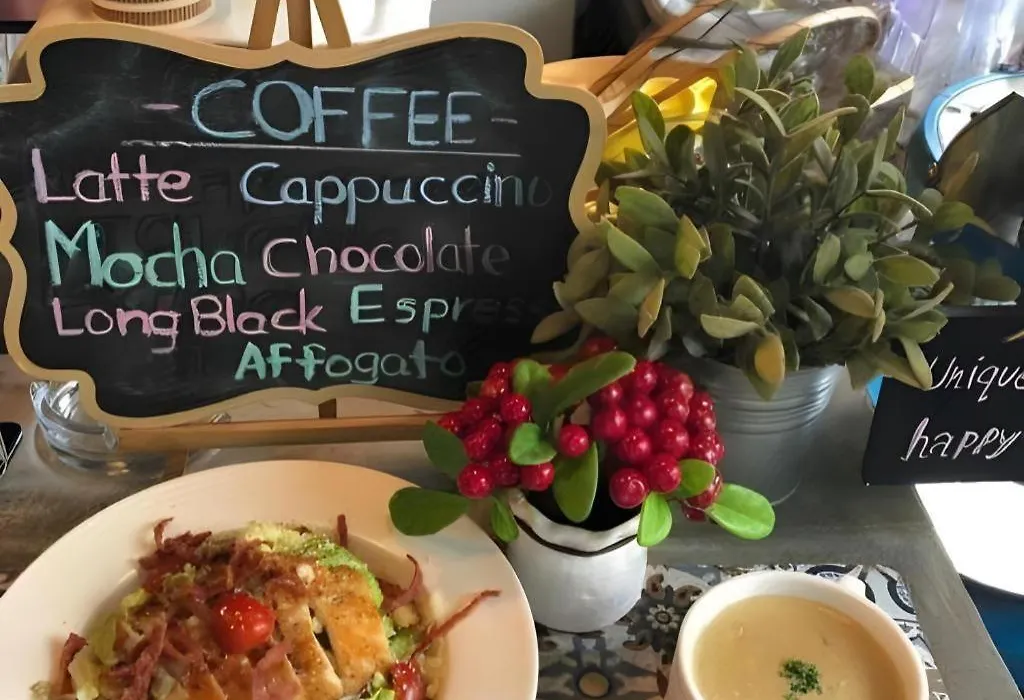 - COFFEE -
Latte Cappuccino
Mocha Chocolate
Long Black Espress
Affogato
Unique
happy